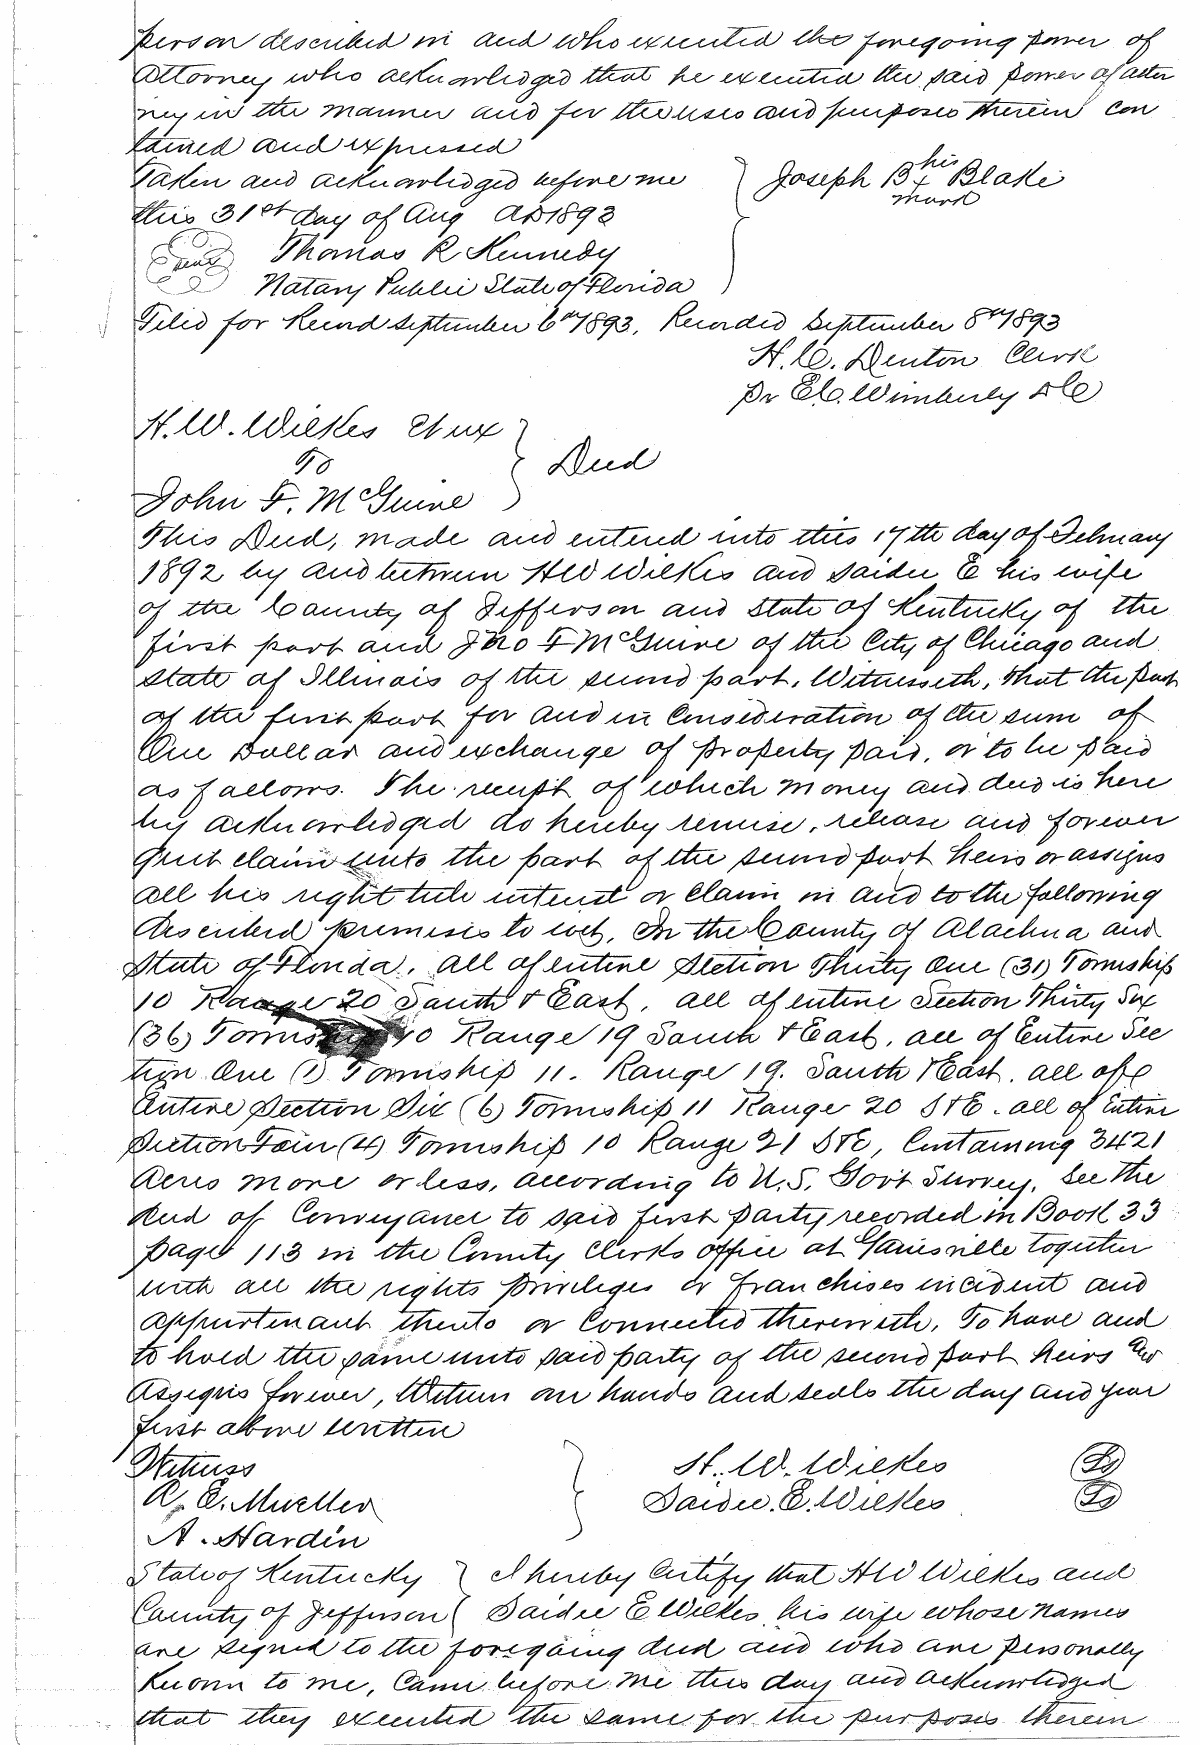 person described in and who executed the foregoing power of
Attorney who acknowledged that he executed the said power of attor
ney in the manner and for the uses and purposes therein con
tained and expressed
Taken and acknowledged before me
this 31st day of Aug AD1893
Joseph B his x mark Blake
Seal
Thomas R Kennedy
Notary Public State of Florida
Filed for Record September 6th 1893. Recorded September 8th 1893
H. C. Denton Clerk
Pr E.C. Wimberly D C
H. W. Wilkes Et ux
To
Deed
John F. McGuire
This Deed, made and entered into this 17th day of February
1892 by and between HW Wilkes and Saidee E his wife
of the County of Jefferson and State of Kentucky of the
first part and Jno F McGuire of the City of Chicago and
State of Illinois of the second part. Witnesseth, that the part
of the first part for and in Consideration of the sum of
One Dollar and exchange of property paid, or to be paid
as follows. The receipt of which money and deed is here
by acknowledged do hereby remise, release and forever
quit claim unto the part of the second part heirs or assigns
all his right title interest or claim in and to the following
described premises to wit, In the County of Alachua and
State of Florida. all of entire Section Thirty One (31) Township
10 Range 20 South & East. all of entire Section Thirty Six
(36) Township 10 Range 19 South & East. all of Entire Sec
tion One (1) Township 11. Range 19. South & East. all of
Entire Section Six (6) Township 11 Range 20 S & E. all of Entire
Section Four (4) Township 10 Range 21 S & E, Containing 3421
Acres more or less, according to U.S. Govt Survey. See the
deed of Conveyance to said first party recorded in Book 33
page 113 in the County Clerks office at Gainesville together
with all the rights privileges or franchises incident and
appurtenant thereto or Connected therewith. To have and
to hold the same unto said party of the second part heirs and
Assigns forever, Witness our hands and seals the day and year
first above written
Witness
H. W. Wilkes Ls
A. E. Mueller
Saidee. E. Wilkes Ls
A. Hardin
State of Kentucky } I hereby Certify that HW Wilkes and
County of Jefferson { Saidee E Wilkes his wife whose names
are signed to the foregoing deed and who are personally
Known to me, Came before me this day and acknowledged
that they executed the same for the purposes therein